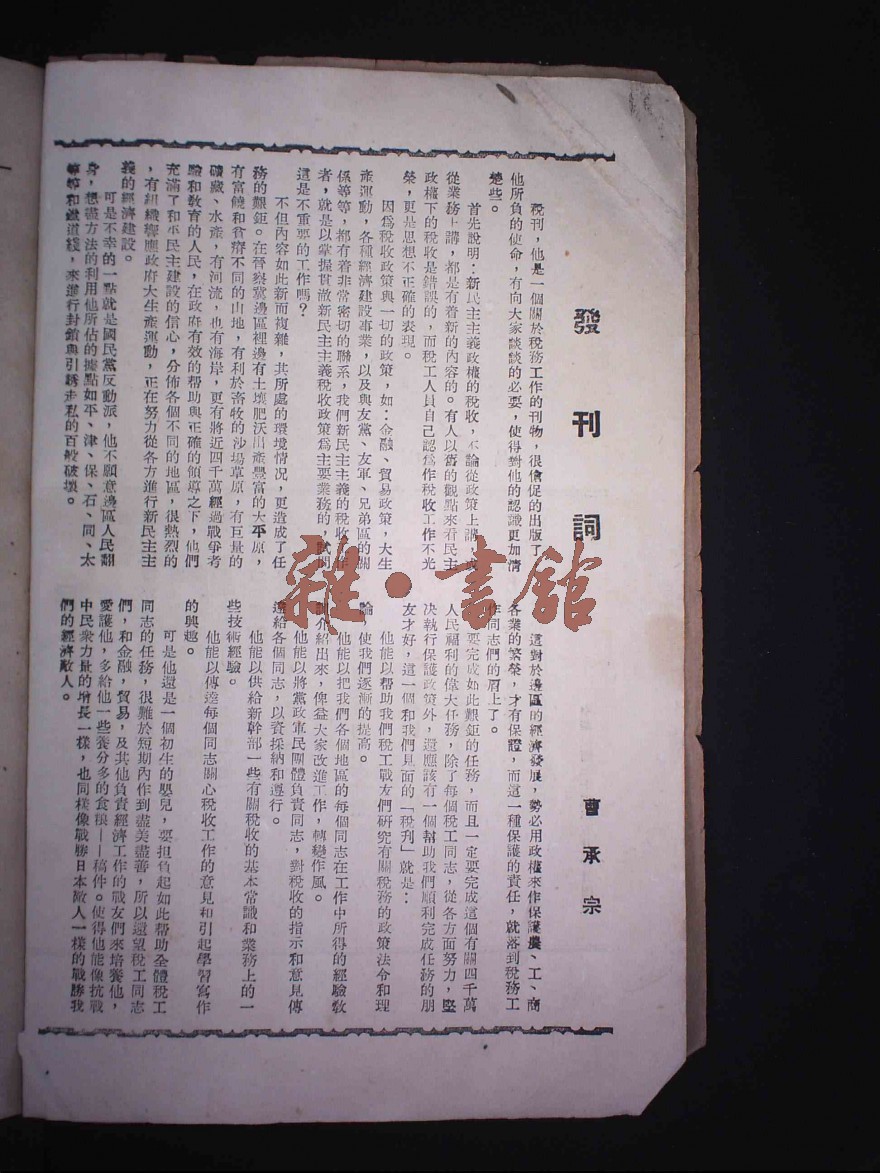 發刊詞
曹承宗
稅刊，他是一個關於稅務工作的刊物，很傖促的出版了，
他所負的使命，有向大家談談的必要，使得對他的認識更加清
楚些。
首先說明：新民主主義政權的稅收，不論從政策上講，或
從業務上講，都是有着新的內容的。有人以舊的觀點來看民主
政權下的稅收是錯誤的，而稅工人員自己認爲作稅收工作不光
榮，更是思想不正確的表現。
因爲稅收政策與一切的政策，如：金融、貿易政策，大生
產運動，各種經濟建設事業，以及與友黨、友軍、兄弟區的關
係等等，都有着非常密切的聯系，我們新民主主義的稅收工作
者，就是以掌握貫澈新民主主義稅收政策爲主要業務的，試問
這是不重要的工作嗎？
不但內容如此新而複雜，其所處的環境情況，更造成了任
務的艱鉅。在晉察冀邊區裡邊有土壤肥沃出產豐富的大平原，
有富饒和貧瘠不同的山地，有利於畜牧的沙場草原，有巨量的
礦藏、水產，有河流，也有海岸，更有將近四千萬經過戰爭考
驗和敎育的人民，在政府有效的帮助與正確的領導之下，他們
充滿了和平民主建設的信心，分佈各個不同的地區，很熱烈的
，有組織響應政府大生產運動，正在努力從各方進行新民主主
義的經濟建設。
可是不幸的一點就是國民黨反動派，他不願意邊區人民翻
身，想盡方法的利用他所佔的據點如平、津、保、石、同、太
等等和鐵道綫，來進行封鎖與引誘走私的百般破壞。
這對於邊區的經濟發展，勢必用政權來作保護農、工、商
各業的繁榮，才有保證，而這一種保護的責任，就落到稅務工
作同志們的肩上了。
要完成如此艱鉅的任務，而且一定要完成這個有關四千萬
人民福利的偉大任務，除了每個稅工同志，從各方面努力，堅
决執行保護政策外，還應該有一個幫助我們順利完成任務的朋
友才好，這一個和我們見面的「稅刋」就是：
他能以幫助我們稅工戰友們研究有關稅務的政策法令和理
論，使我們逐漸的提高。
他能以把我們各個地區的每個同志在工作中所得的經驗敎
訓介紹出來，俾益大家改進工作，轉變作風。
他能以將黨政軍民團體負責同志，對稅收的指示和意見傳
達給各個同志，以資採納和遵行。
他能以供給新幹部一些有關稅收的基本常識和業務上的一
些技術經驗。
他能以傳達每個同志關心稅收工作的意見和引起學習寫作
的興趣。
可是他還是一個初生的嬰兒，要担負起如此帮助全體稅工
同志的任務，很難於短期內作到盡美盡善，所以還望稅工同志
們，和金融，貿易，及其他負責經濟工作的戰友們來培養他，
愛護他，多給他一些養分多的食糧——稿件。使得他能像抗戰
中民衆力量的增長一樣，也同樣像戰勝日本敵人一樣的戰勝我
們的經濟敵人。
雜·書館